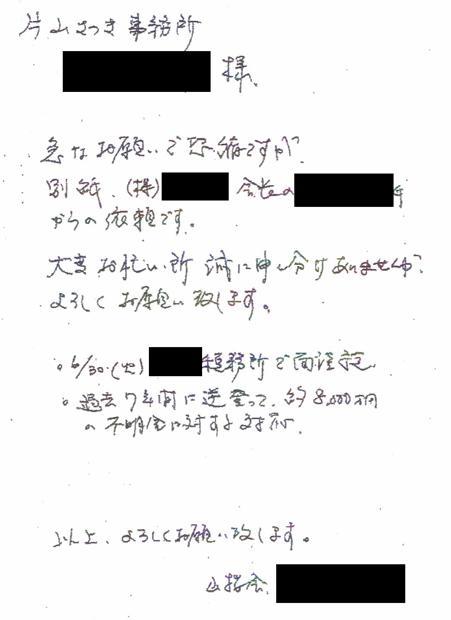 片山さつき事務所
様
急なお願いで恐縮ですが、
別紙、(株) 会長の
からの依頼です。
大変お忙しい所 誠に申し分けありませんが、
よろしくお願い致します。
。6/30(火) 税務所で面談
。過去7年間に逆登って、約8,000万円
の不明金に対する対応。
以上、よろしくお願い致します。